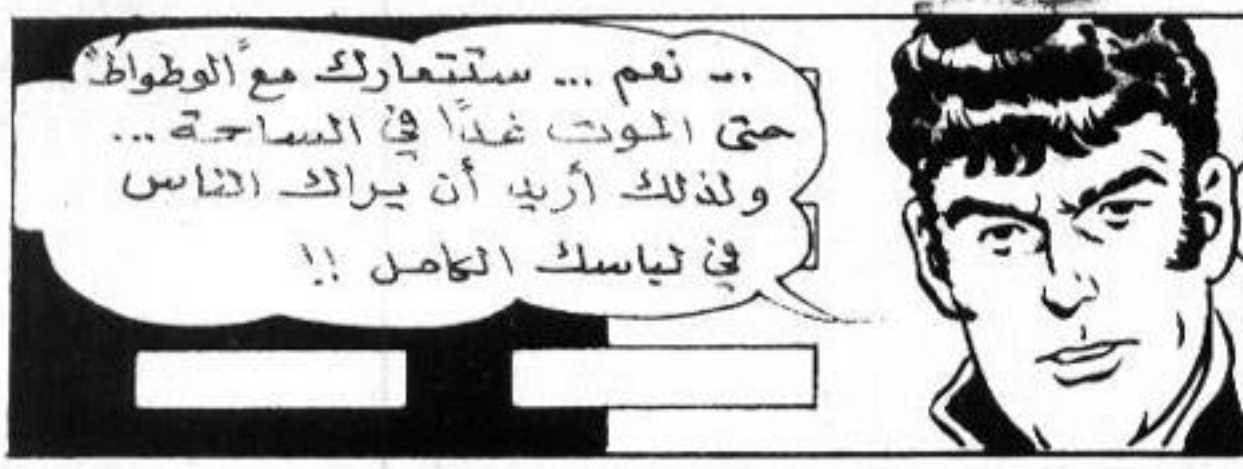 ... نعم ... ستتعارك مع "الوطواط"
حتى الموت غدًا في الساحة ...
ولذلك أريد أن يراك الناس
في لباسك الكامل !!